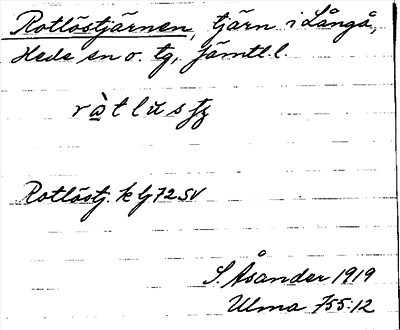 Rotlöstjärnen, tjärn i Långå,
Hede sn o. tg, Jämtl. l.
Rotlöstj. k bj 72 SV
S. Åsander 1919
Ulma 755:12